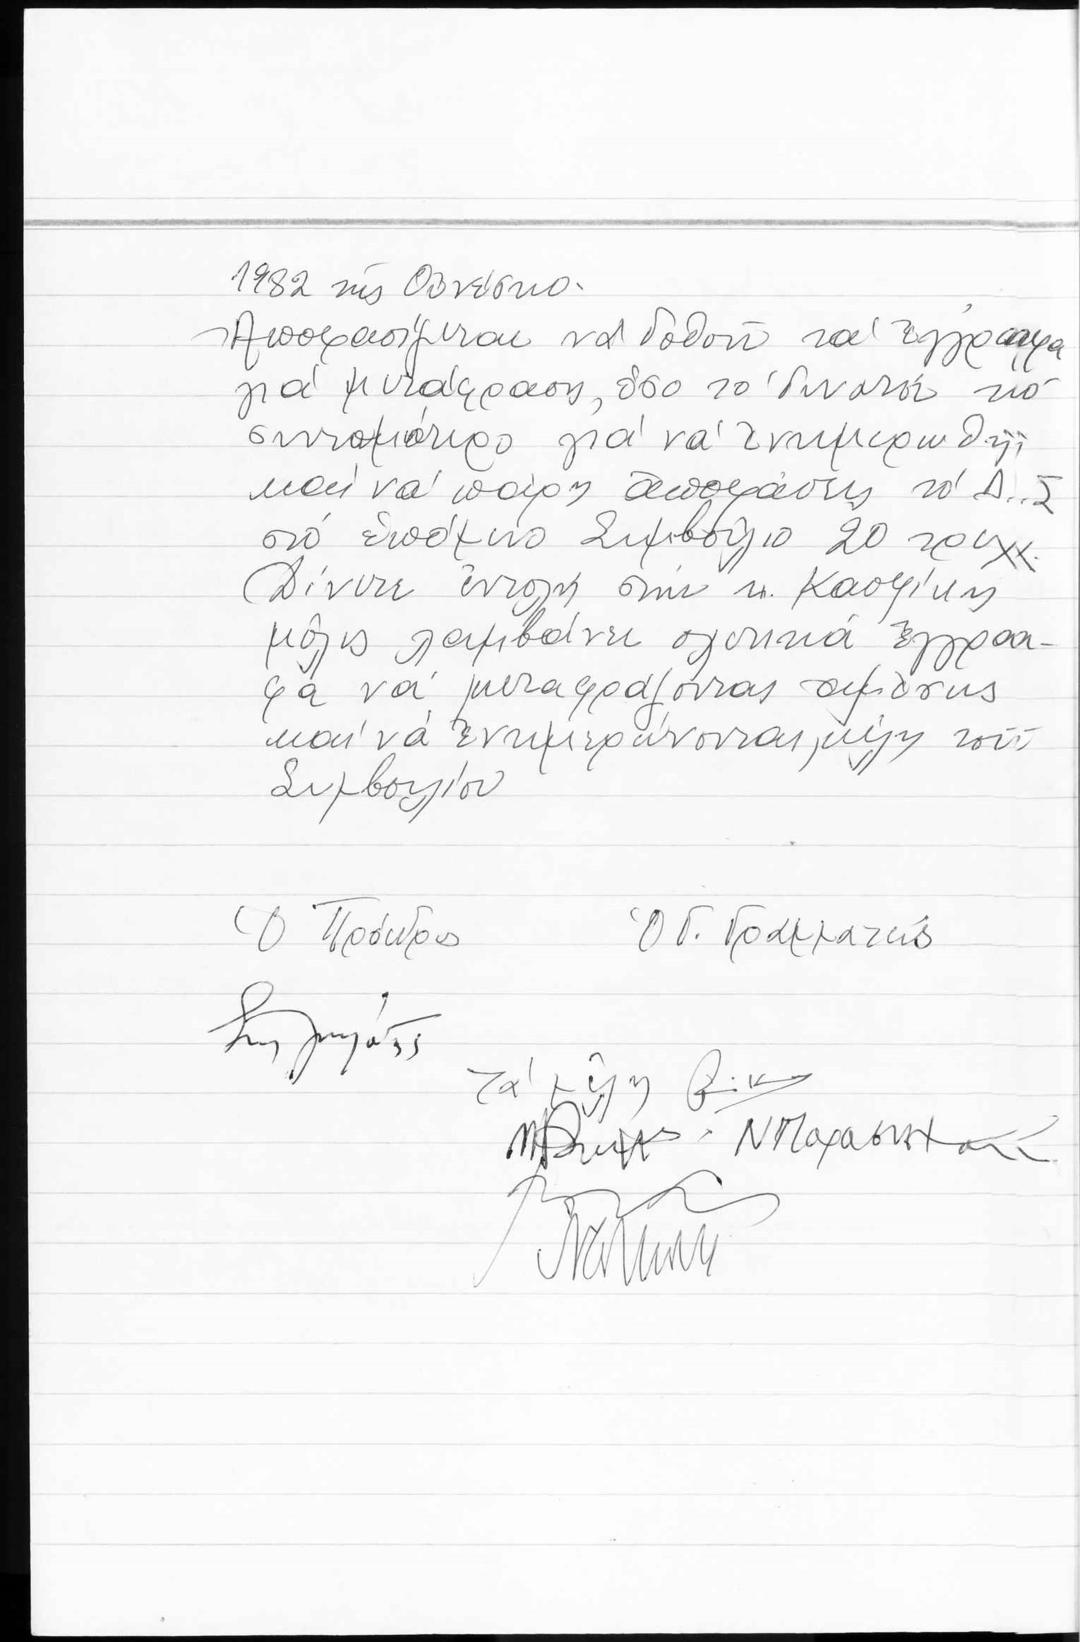 1982 τῆς Οὐνέσκο.
Ἀποφασίζεται νά δοθοῦν τά ἔγγραφα
γιά μετάφραση, ὅσο τό δυνατόν πιό
συντομώτερο γιά νά ἐνημερωθῆ
καί νά πάρη ἀποφάσεις τό Δ.Σ
στό ἑπόμενο Συμβούλιο 20 τρεχ.
Δίνετε ἐντολή στήν κ.
μόλις λαμβάνει σχετικά ἔγγρα-
φα νά μεταφράζονται ἀμέσως
καί νά ἐνημερώνονται, μέλη τοῦ
Συμβουλίου
Ὁ Πρόεδρος Ὁ Γ. Γραμματεύς
Τά μέλη